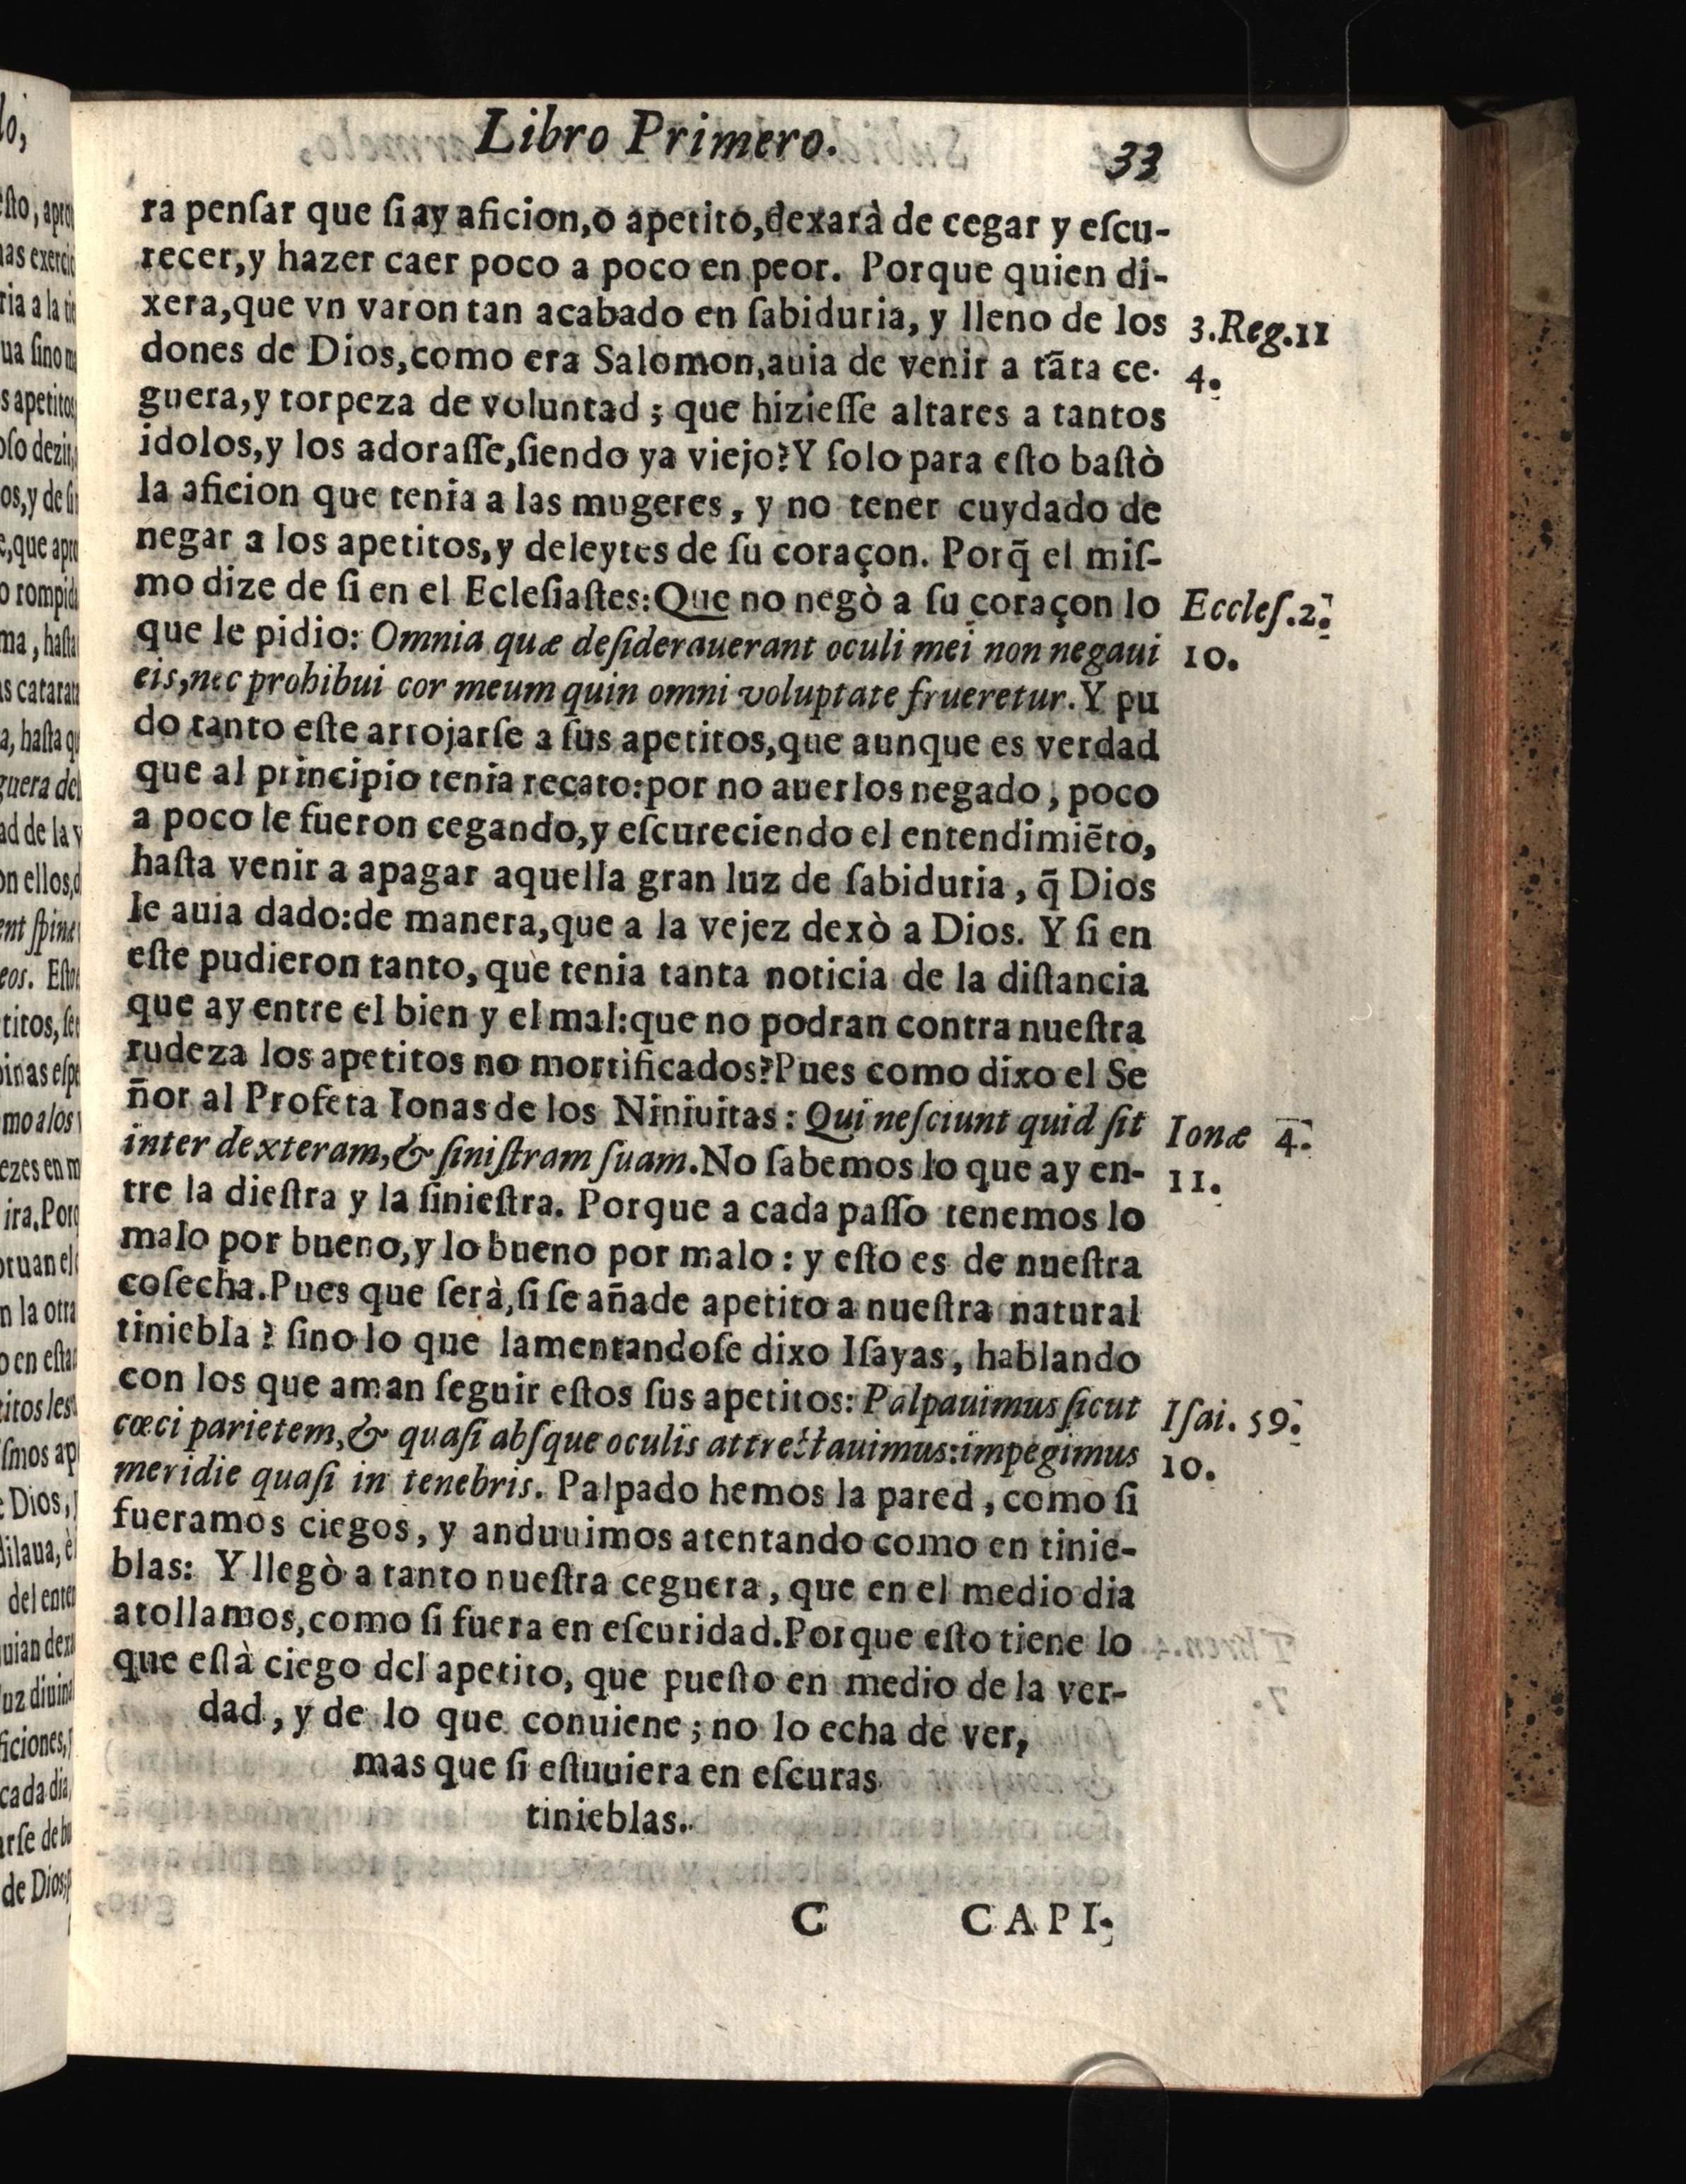 Libro Primero.
33
ra penſar que ſi ay aficion,o apetito,dexarà de cegar y eſcu-
recer,y hazer caer poco a poco en peor. Porque quien di-
xera,que vn varon tan acabado en ſabiduria, y lleno de los
3.Reg.11
dones de Dios,como era Salomon,auia de venir a tāta ce-
4.
guera,y torpeza de voluntad ; que hizieſſe altares a tantos
idolos,y los adoraſſe,ſiendo ya viejo?Y ſolo para eſto baſtò
la aficion que tenia a las mugeres, y no tener cuydado de
negar a los apetitos,y deleytes de ſu coraçon. Porq̃ el miſ-
mo dize de ſi en el Ecleſiaſtes:Que no negò a ſu coraçon lo
Eccleſ.2.
que le pidio: Omnia quæ deſiderauerant oculi mei non negaui
10.
eis,nec prohibui cor meum quin omni voluptate frueretur. Y pu
do tanto eſte arrojarſe a ſus apetitos,que aunque es verdad
que al principio tenia recato:por no auerlos negado, poco
a poco le fueron cegando,y eſcureciendo el entendimiēto,
haſta venir a apagar aquella gran luz de ſabiduria, q̃ Dios
le auia dado:de manera,que a la vejez dexò a Dios. Y ſi en
eſte pudieron tanto, que tenia tanta noticia de la diſtancia
que ay entre el bien y el mal:que no podran contra nueſtra
rudeza los apetitos no mortificados?Pues como dixo el Se
ñor al Profeta Ionas de los Niniuitas: Qui neſciunt quid ſit
Ionæ 4.
inter dexteram,& ſiniſtram ſuam.No ſabemos lo que ay en-
11.
tre la dieſtra y la ſinieſtra. Porque a cada paſſo tenemos lo
malo por bueno,y lo bueno por malo: y eſto es de nueſtra
coſecha.Pues que ſerà,ſi ſe añade apetito a nueſtra natural
tiniebla ? ſino lo que lamentandoſe dixo Iſayas, hablando
con los que aman ſeguir eſtos ſus apetitos: Palpauimus ſicut
Iſai. 59.
cæci parietem,& quaſi abſque oculis attrectauimus:impegimus
10.
meridie quaſi in tenebris. Palpado hemos la pared, como ſi
fueramos ciegos, y anduuimos atentando como en tinie-
blas: Y llegò a tanto nueſtra ceguera, que en el medio dia
atollamos,como ſi fuera en eſcuridad.Porque eſto tiene lo
que eſtà ciego del apetito, que pueſto en medio de la ver-
dad, y de lo que conuiene ; no lo echa de ver,
mas que ſi eſtuuiera en eſcuras
tinieblas.
C
CAPI-